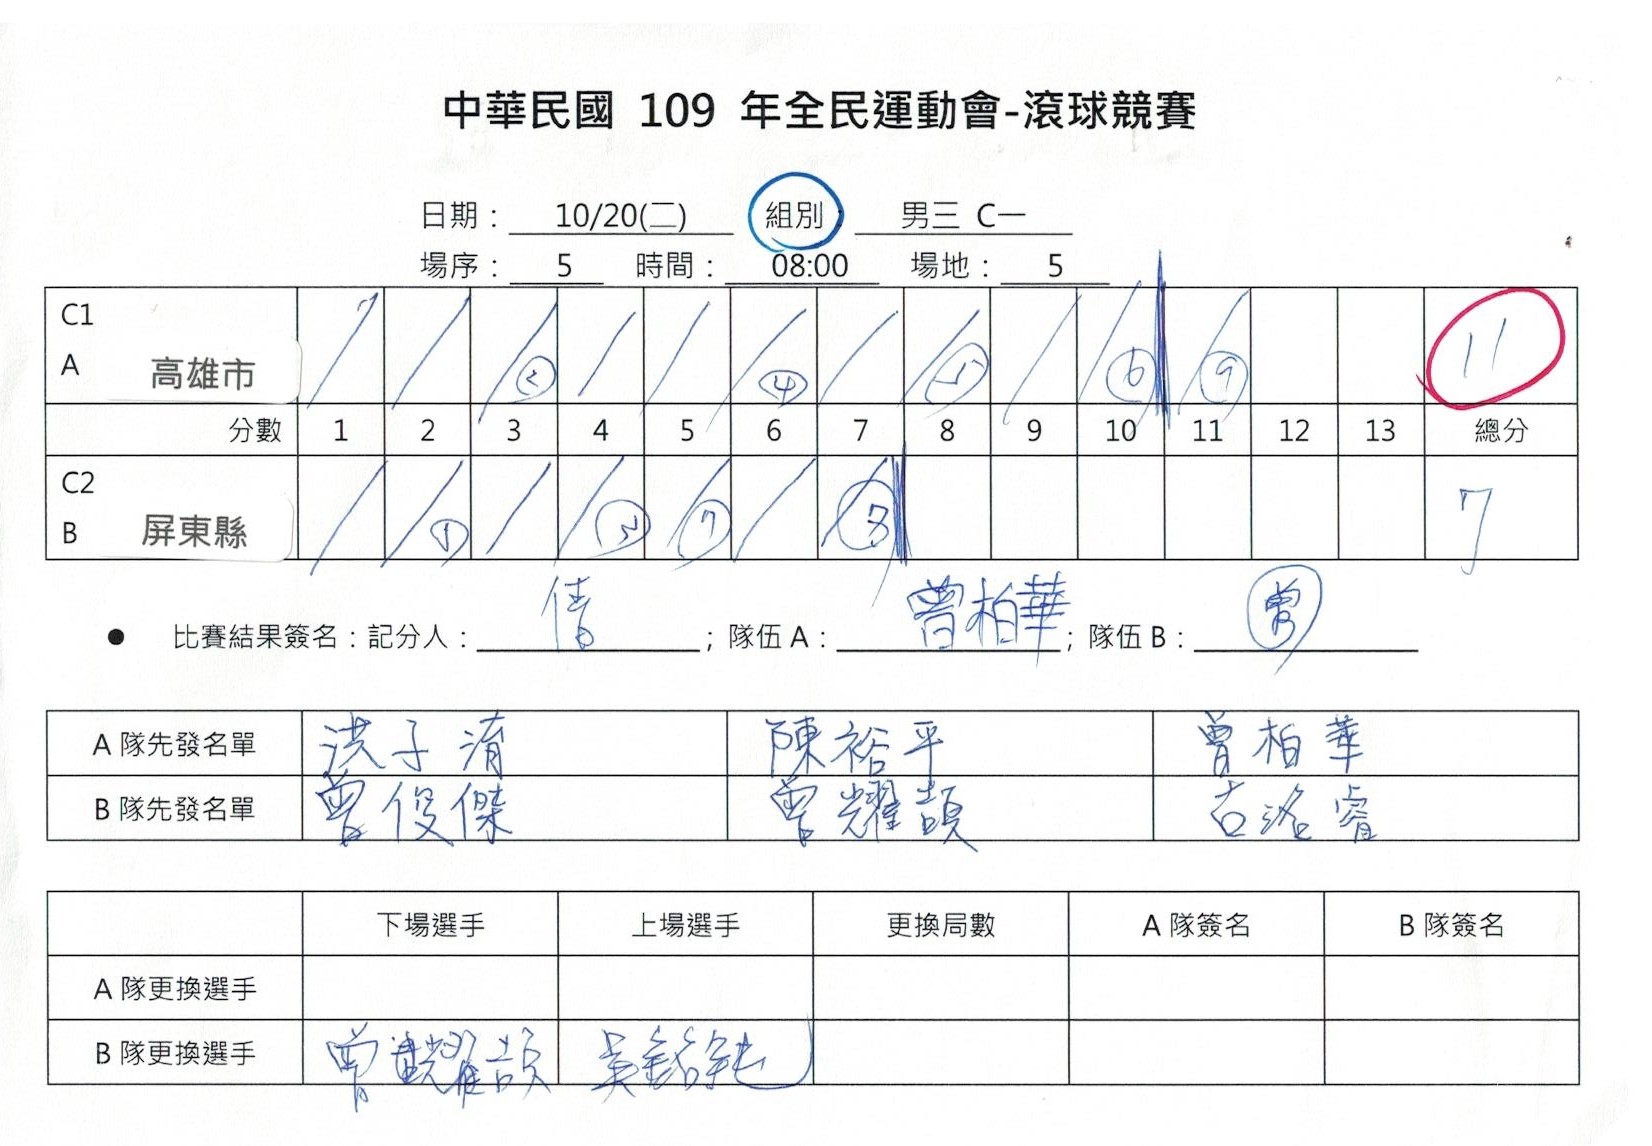 中華民國 109 年全民運動會-滾球競賽
日期： 10/20(二) 組別： 男三 C一
場序： 5 時間： 08:00 場地： 5
C1
A 高雄市 ② ④ ⑤ ⑥ ⑨ 11
分數 1 2 3 4 5 6 7 8 9 10 11 12 13 總分
C2
B 屏東縣 ① ③ ⑦ ⑧ 7
● 比賽結果簽名：記分人： ；隊伍 A： 曾柏華 ；隊伍 B： 曾
A 隊先發名單 洪子淯 陳裕平 曾柏華
B 隊先發名單 曾俊傑 曾耀頡 古洺睿
下場選手 上場選手 更換局數 A 隊簽名 B 隊簽名
A 隊更換選手
B 隊更換選手 曾耀頡 吳